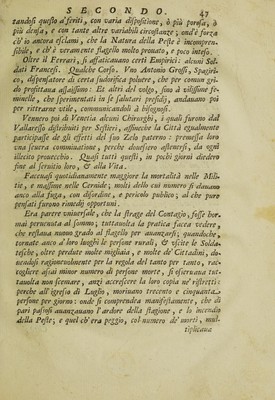 SECONDO. 47
tandosi questo a' feriti, con varia disposizione, ò più porosa, ò
più densa, e con tante altre variabili circostanze; ond'è forza
ch'io ancora esclami, che la Natura della Peste è incompren-
sibile, e ch'è veramente flagello molto pronato, e poco inteso.
Oltre il Ferrari, si affaticauano certi Empirici: alcuni Sol-
dati Francesi. Qualche Corso. Vno Antonio Grossi, Spagiri-
co, dispensatore di certa sudorifica poluere, che per comun gri-
do profittaua assaissimo: Et altri del volgo, sino à vilissime fe-
minelle, che sperimentati in se salutari presidij, andauano poi
per rittrarne vtile, communicandoli à bisognosi.
Vennero poi di Venetia alcuni Chirurghi, i quali furono dal
Vallaresso distribuiti per Sestieri, affinche la Città egualmente
participasse de gli effetti del suo Zelo paterno: premessa loro
vna seuera comminatione, perche douessero astenersi, da ogni
illecito prouecchio. Quasi tutti questi, in pochi giorni diedero
fine al seruitio loro, & alla Vita.
Faceuasi quotidianamente maggiore la mortalità nelle Mili-
tie, e massime nelle Cernide; molti dello cui numero si dauano
anco alla fuga, con disordine, e pericolo publico; al che pure
pensati furono rimedij opportuni.
Era parere vniuersale, che la strage del Contagio, fosse hor-
mai peruenuta al sommo; tuttauolta la pratica facea vedere,
che restaua nuouo grado al flagello per auanzarsi; quandoche,
tornate anco a' lor luoghi le persone rurali, & vscite le Solda-
tesche, oltre perdute molte migliaia, e molte de' Cittadini, do-
uendosi ragioneuolmente per la regola del tanto per tanto, rac-
cogliere assai minor numero di persone morte, si osseruaua tut-
tauolta non scemare, anzi accrescere la loro copia ne' ristretti:
perche all'ingresso di Luglio, moriuano trecento e cinquanta
persone per giorno: onde si comprendea manifestamente, che di
pari passosi auanzauano l'ardore della stagione, e lo incendio
della Peste; e quel ch'era peggio, col numero de' morti, mul-
tiplicaua